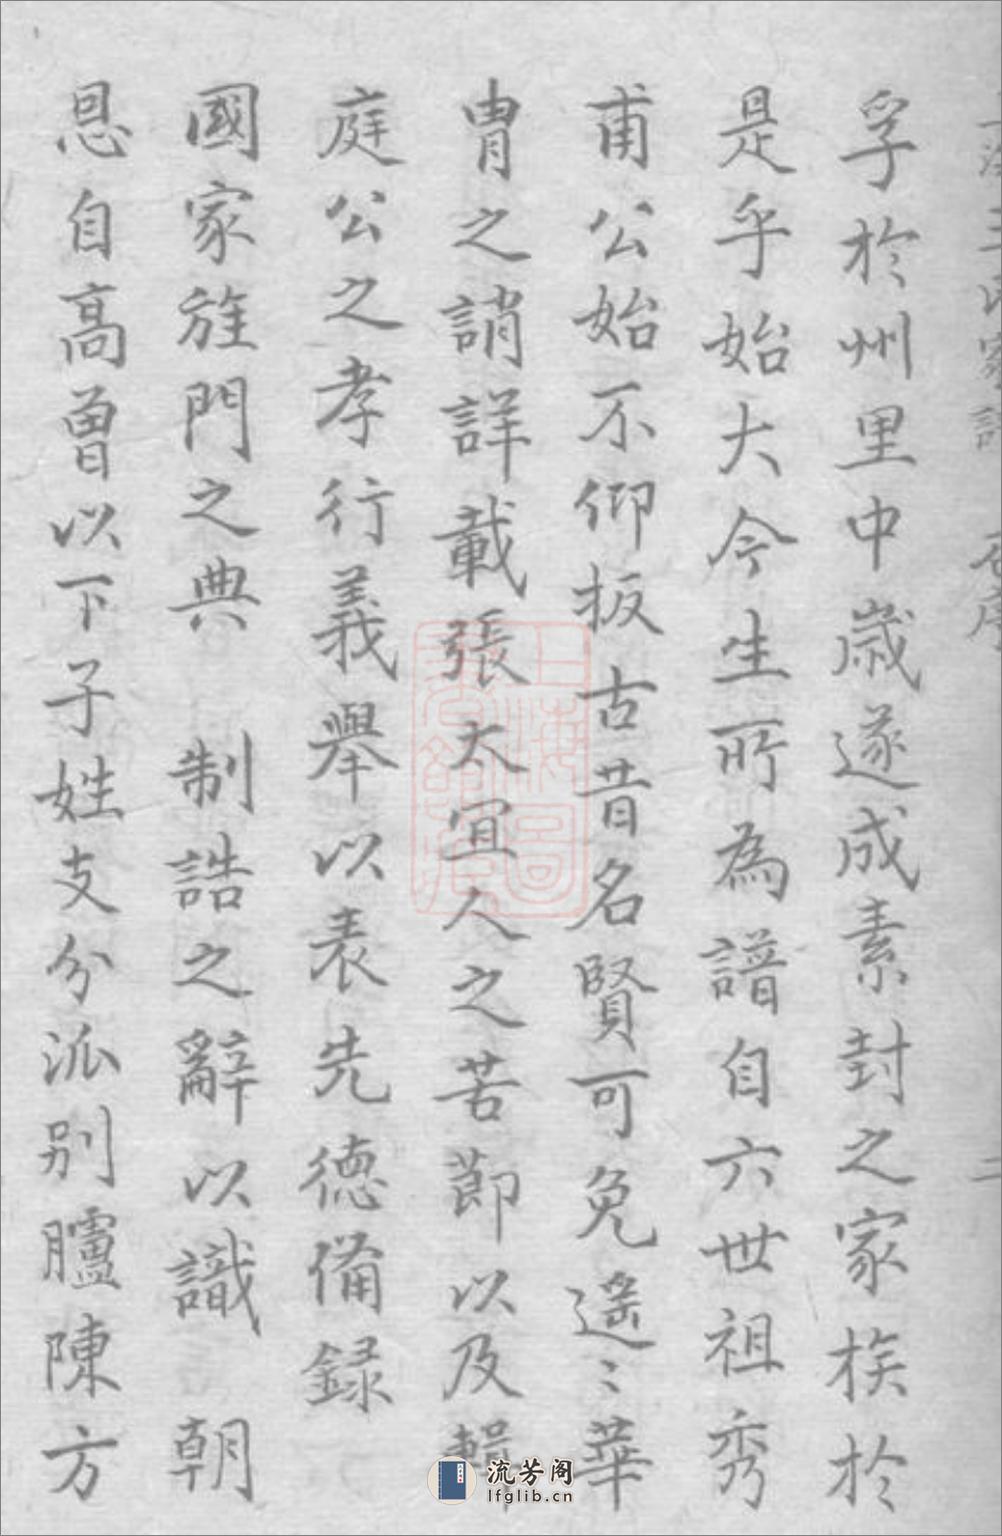 孚於州里中歲遂成素封之家族於
是乎始大今生所為譜自六世祖秀
甫公始不仰扳古昔名賢可免遥〻華
胄之誚詳載張太宜人之苦節以及輯
庭公之孝行義舉以表先德備録
國家旌門之典 制誥之辭以識 朝
恩自高曾以下子姓支分派别臚陳方
上海圖
書館藏
流芳阁
lfglib.cn